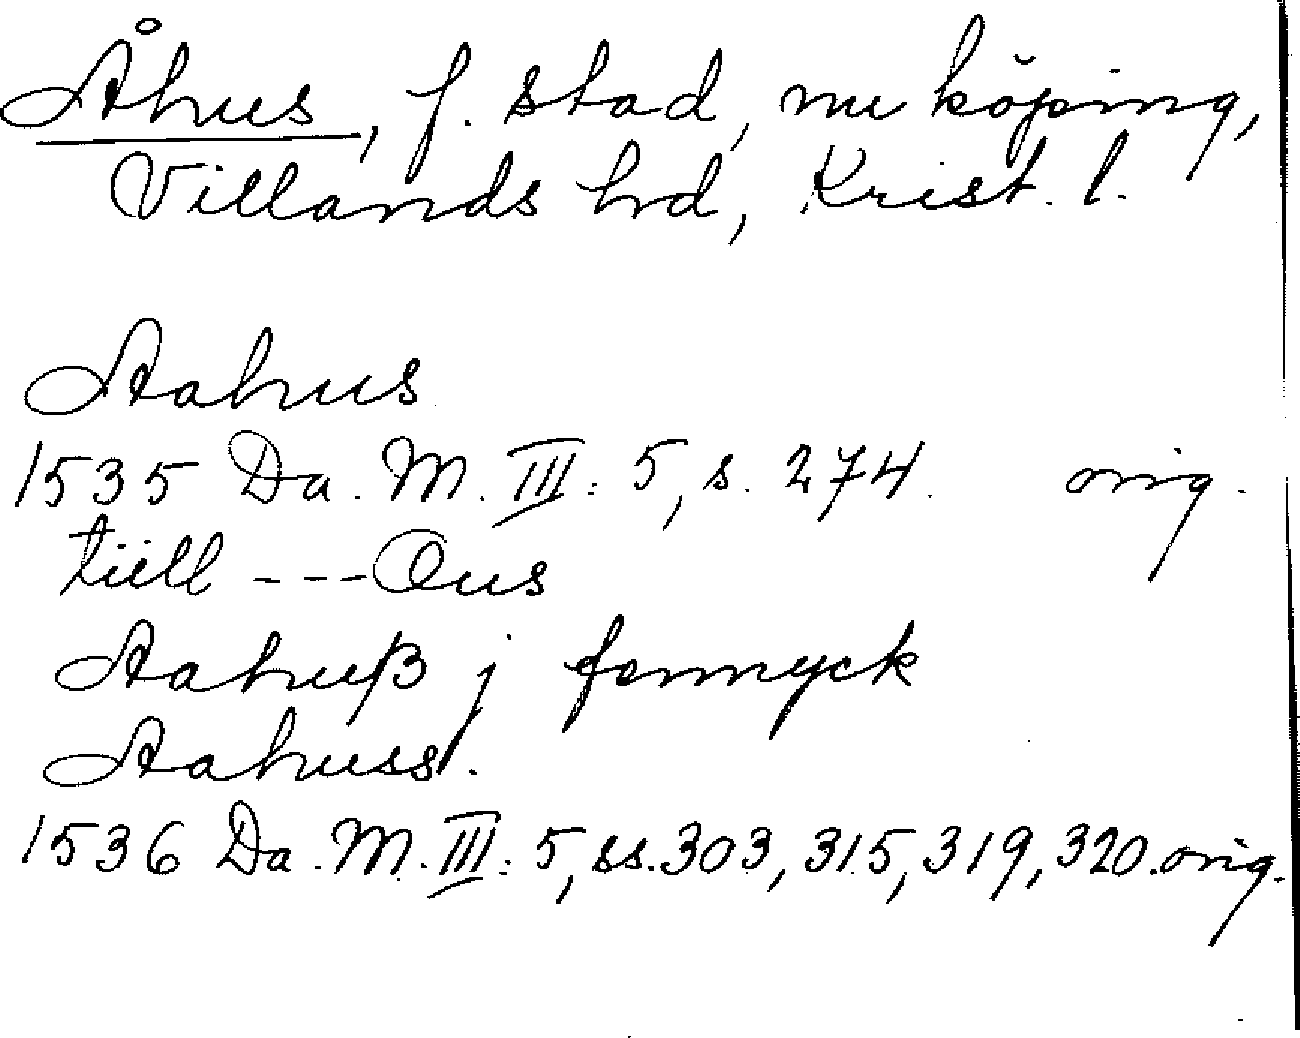 Åhus, f. stad, nu köping,
Villands hrd, Krist. l.
Aahus
1535 Da. M. III: 5, s. 274. orig.
tiill --- Ous
Aahuß j fønnyck
Aahuss.
1536 Da. M. III: 5, ss. 303, 315, 319, 320. orig.